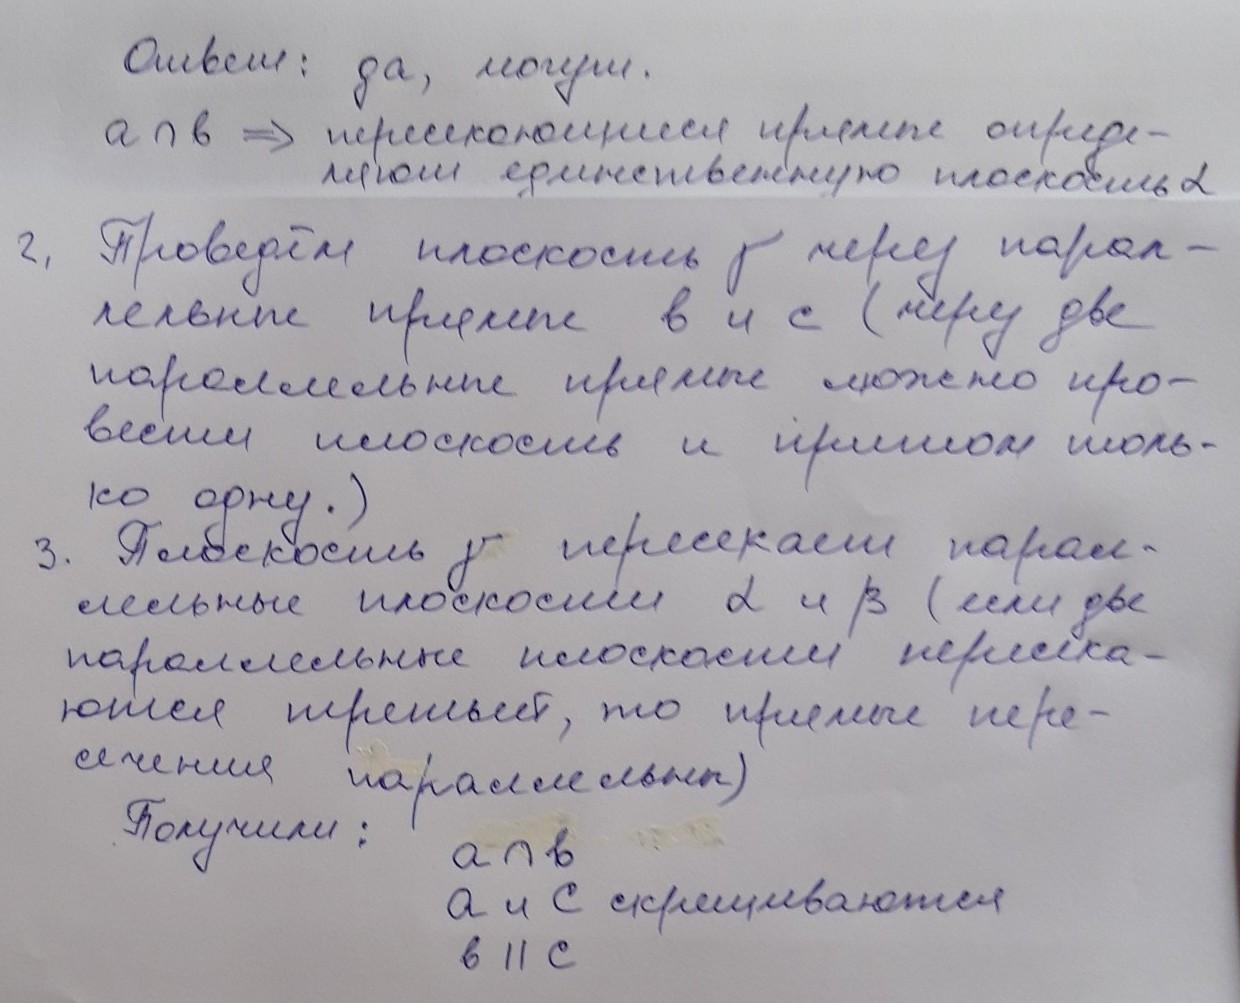 Ответ: да, могут.
a ∩ b ⇒ пересекающиеся прямые опреде-
ляют единственную плоскость α
2. Проведём плоскость γ через парал-
лельные прямые b и c (через две
параллельные прямые можно про-
вести плоскость и притом толь-
ко одну.)
3. Плоскость γ пересекает парал-
лельные плоскости α и β (если две
параллельные плоскости пересека-
ются третьей, то прямые пере-
сечения параллельны)
Получили:
a ∩ b
a и c скрещиваются
b || c